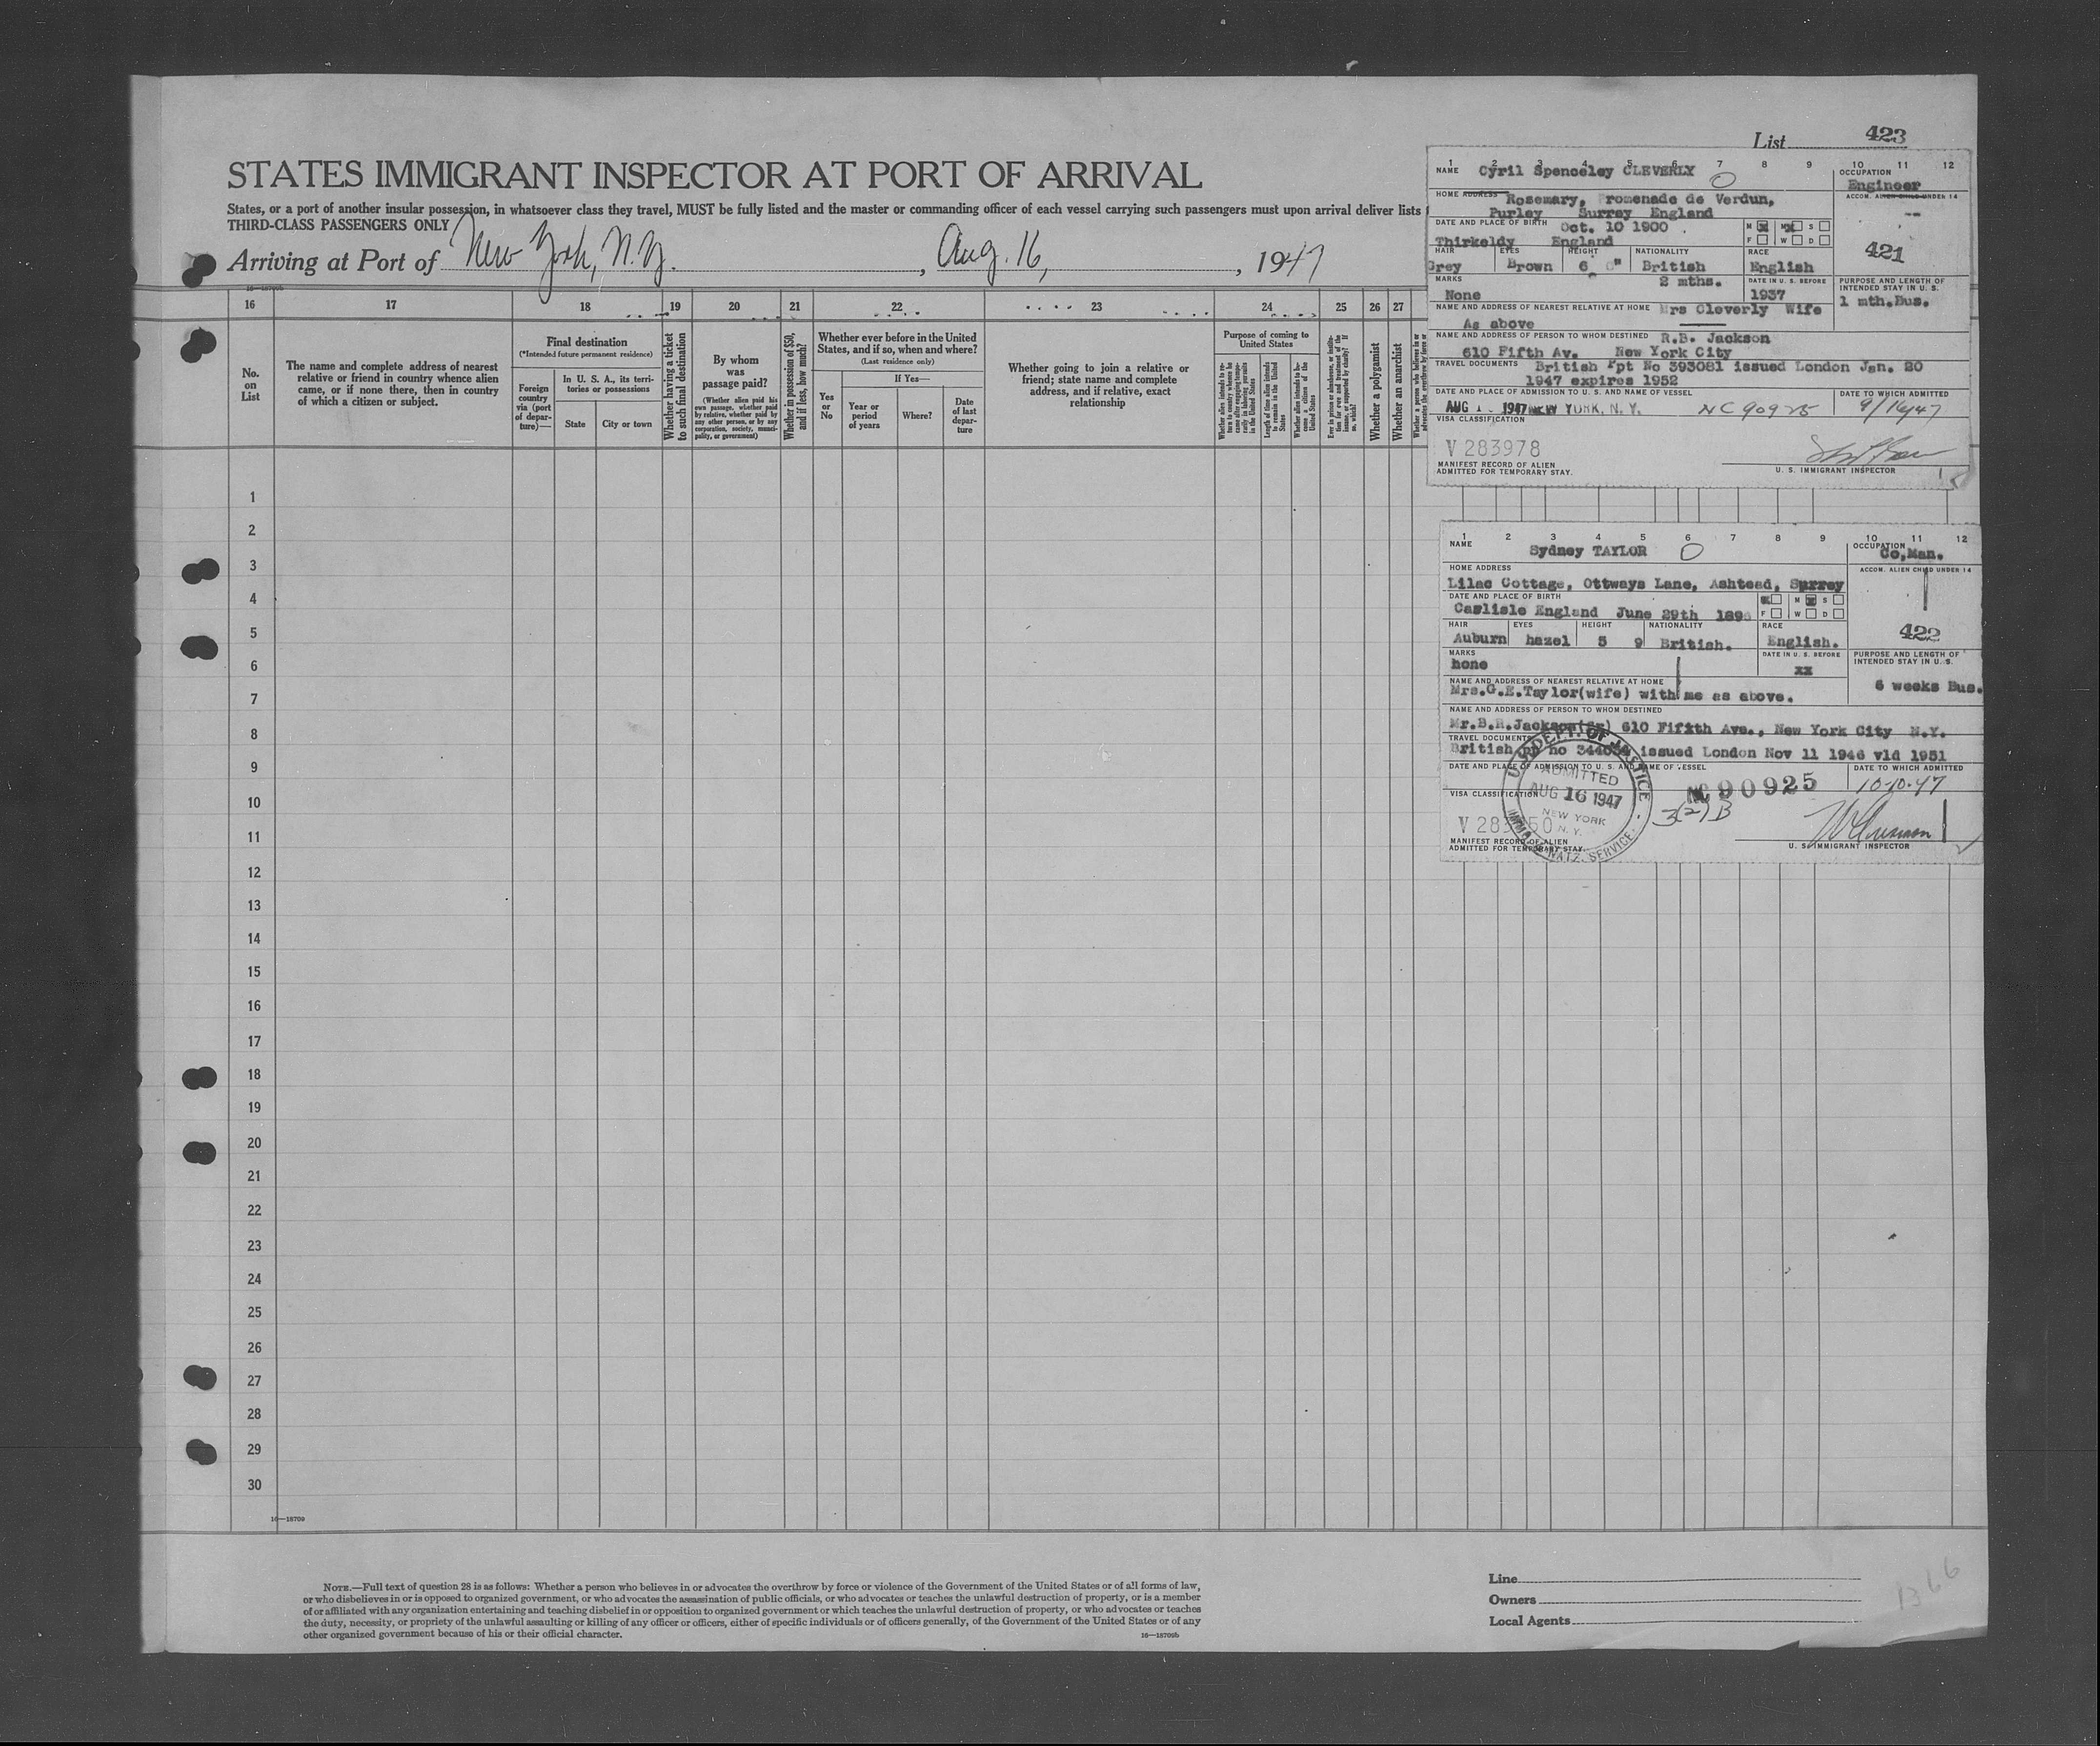 List 423
STATES IMMIGRANT INSPECTOR AT PORT OF ARRIVAL
States, or a port of another insular possession, in whatsoever class they travel, MUST be fully listed and the master or commanding officer of each vessel carrying such passengers must upon arrival deliver lists
THIRD-CLASS PASSENGERS ONLY
Arriving at Port of New York, N.Y. , Aug. 16, , 1947
16 17 18 19 20 21 22 23 24 25 26 27
No. on List
The name and complete address of nearest
relative or friend in country whence alien
came, or if none there, then in country
of which a citizen or subject.
Final destination
(*Intended future permanent residence)
Foreign
country
via (port
of depar-
ture)—
In U. S. A., its terri-
tories or possessions
State
City or town
Whether having a ticket
to such final destination
By whom
was
passage paid?
(Whether alien paid his
own passage, whether paid
by relative, whether paid by
any other person, or by any
corporation, society, munici-
pality, or government)
Whether in possession of $50,
and if less, how much?
Whether ever before in the United
States, and if so, when and where?
(Last residence only)
Yes
or
No
If Yes—
Year or
period
of years
Where?
Date
of last
depar-
ture
Whether going to join a relative or
friend; state name and complete
address, and if relative, exact
relationship
Purpose of coming to
United States
Length of time alien intends
to remain in the United
States
Whether alien intends to be-
come a citizen of the
United States
Whether a polygamist
Whether an anarchist
1
2
3
4
5
6
7
8
9
10
11
12
13
14
15
16
17
18
19
20
21
22
23
24
25
26
27
28
29
30
16—18709
1 2 3 4 5 6 7 8 9 10 11 12
NAME Cyril Spenceley CLEVERLY
OCCUPATION
Engineer
HOME ADDRESS Rosemary, Promenade de Verdun,
ACCOM. ALIEN CHILD UNDER 14
Purley Surrey England
--
DATE AND PLACE OF BIRTH Oct. 10 1900
M M S
F W D
Thirkeldy England
421
HAIR EYES HEIGHT NATIONALITY RACE
Grey Brown 6 0" British English
MARKS 2 mths. DATE IN U. S. BEFORE
None 1937
PURPOSE AND LENGTH OF
INTENDED STAY IN U. S.
1 mth.Bus.
NAME AND ADDRESS OF NEAREST RELATIVE AT HOME Mrs Cleverly Wife
As above
NAME AND ADDRESS OF PERSON TO WHOM DESTINED R.B. Jackson
610 Fifth Av. New York City
TRAVEL DOCUMENTS British Ppt No 393081 issued London Jan. 20
1947 expires 1952
DATE AND PLACE OF ADMISSION TO U. S. AND NAME OF VESSEL DATE TO WHICH ADMITTED
AUG 1947 NEW YORK, N. Y. NC 90925 9/16/47
VISA CLASSIFICATION
V 283978
MANIFEST RECORD OF ALIEN
ADMITTED FOR TEMPORARY STAY.
U. S. IMMIGRANT INSPECTOR
1 2 3 4 5 6 7 8 9 10 11 12
NAME Sydney TAYLOR
OCCUPATION
Co,Man.
HOME ADDRESS
ACCOM. ALIEN CHILD UNDER 14
Lilac Cottage, Ottways Lane, Ashtead, Surrey
DATE AND PLACE OF BIRTH
M S
F W D
Carlisle England June 29th
422
HAIR EYES HEIGHT NATIONALITY RACE
Auburn hazel 5 9 British. English.
MARKS DATE IN U. S. BEFORE
none xx
PURPOSE AND LENGTH OF
INTENDED STAY IN U. S.
6 weeks Bus.
NAME AND ADDRESS OF NEAREST RELATIVE AT HOME
Mrs.G.E.Taylor(wife) with me as above.
NAME AND ADDRESS OF PERSON TO WHOM DESTINED
Mr.B.R.Jackson(Sr) 610 Fifxth Ave., New York City N.Y.
TRAVEL DOCUMENTS
British pp no issued London Nov 11 1946 vld 1951
DATE AND PLACE OF ADMISSION TO U. S. AND NAME OF VESSEL DATE TO WHICH ADMITTED
NC 90925 10-10-47
VISA CLASSIFICATION
3(2) B
U.S. DEPT. OF JUSTICE
ADMITTED
AUG 16 1947
NEW YORK
N. Y.
IMMIG. & NATZ. SERVICE
MANIFEST RECORD OF ALIEN
ADMITTED FOR TEMPORARY STAY.
U. S. IMMIGRANT INSPECTOR
NOTE.—Full text of question 28 is as follows: Whether a person who believes in or advocates the overthrow by force or violence of the Government of the United States or of all forms of law,
or who disbelieves in or is opposed to organized government, or who advocates the assassination of public officials, or who advocates or teaches the unlawful destruction of property, or is a member
of or affiliated with any organization entertaining and teaching disbelief in or opposition to organized government or which teaches the unlawful destruction of property, or who advocates or teaches
the duty, necessity, or propriety of the unlawful assaulting or killing of any officer or officers, either of specific individuals or of officers generally, of the Government of the United States or of any
other organized government because of his or their official character.
16—18709b
Line
Owners
Local Agents
1366